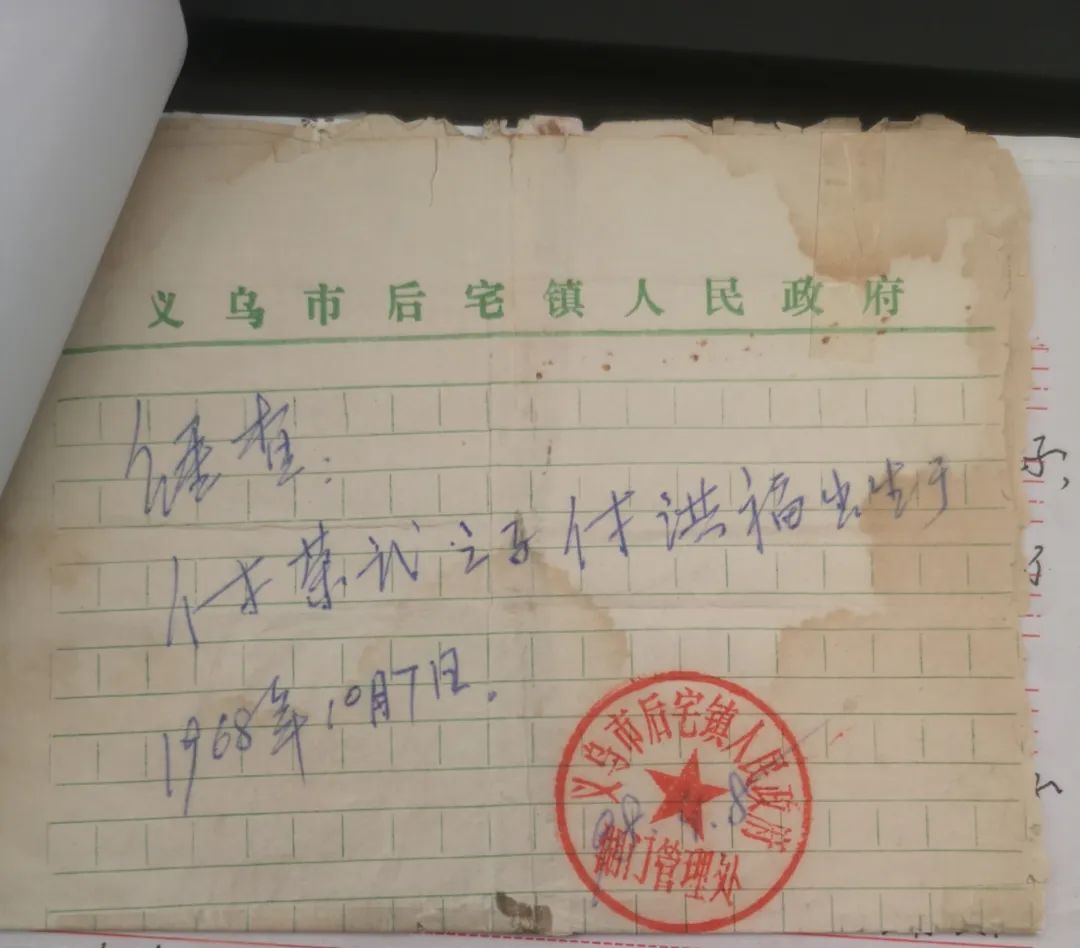 义乌市后宅镇人民政府
查:
付荣之子付洪福出生于
1968年10月7日.
义乌市后宅镇人民政府
门管理处
98.4.8
子,
了